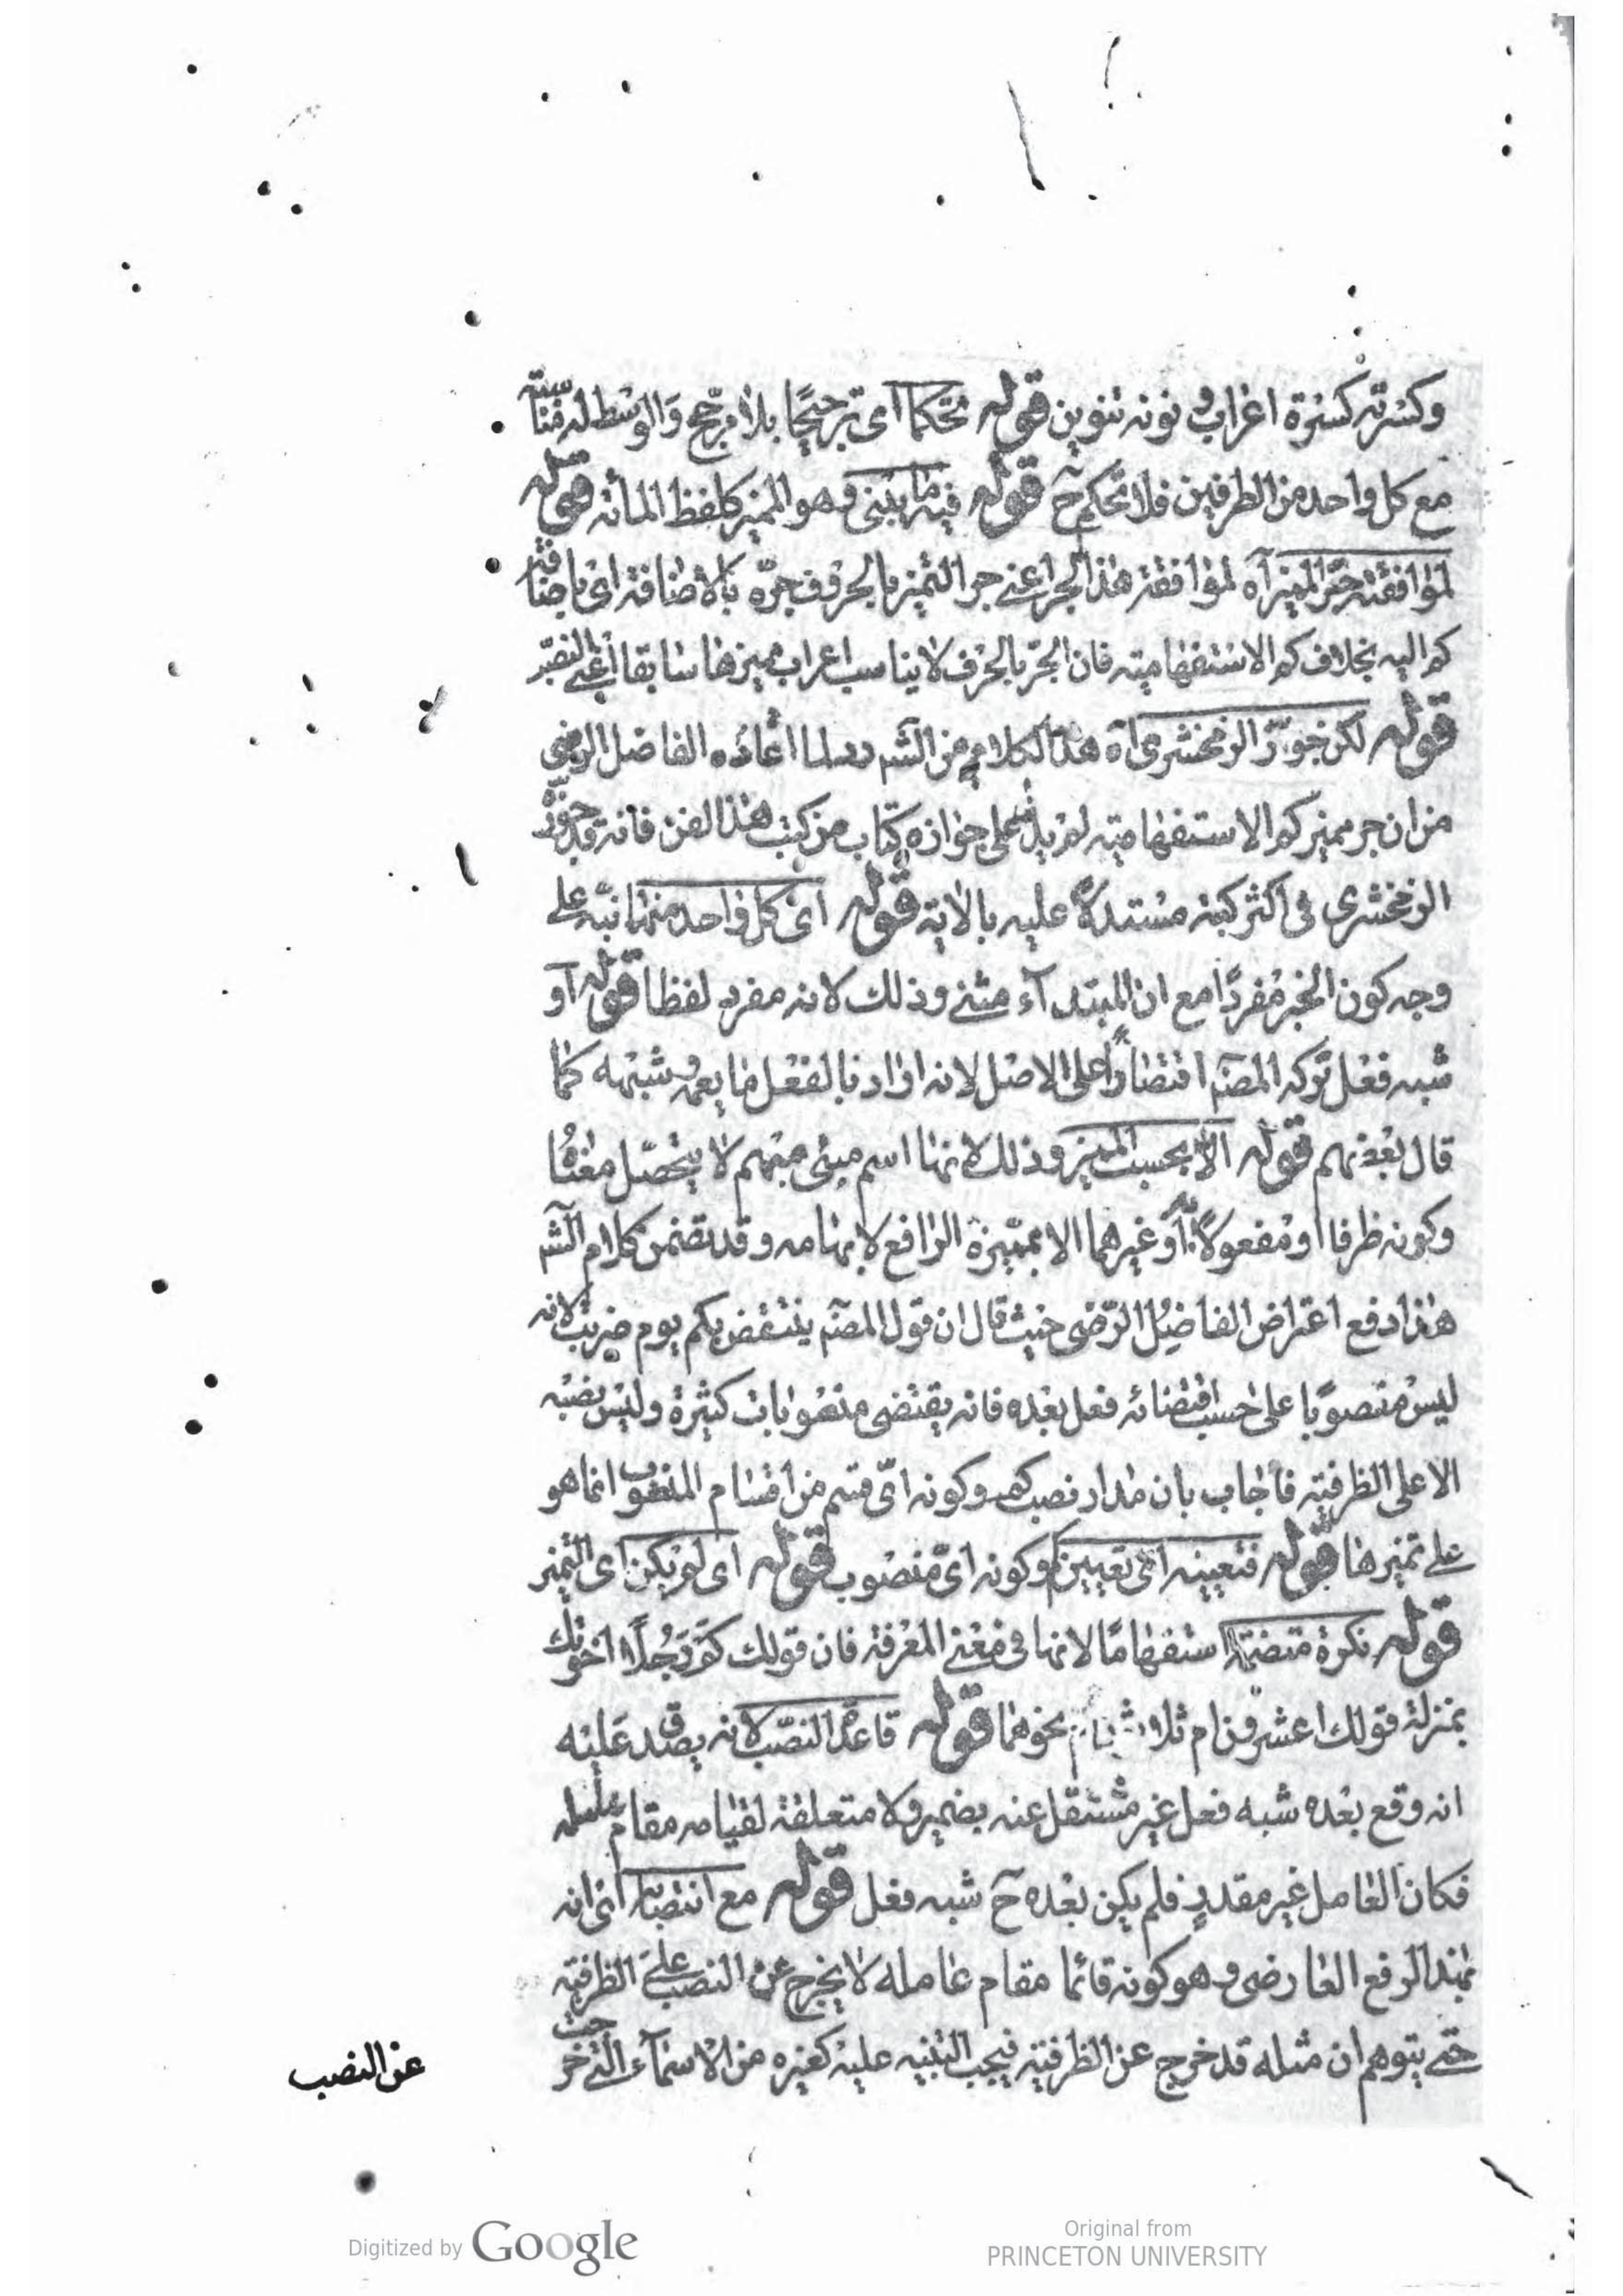 وكسرته كسرة اعراب ونونه تنوين قوله تحكما اى ترجيحا بلا مرجح والوسط له مناسبة
مع كل واحد من الطرفين فلا تحكم ح قوله فيما بنى وهو المميز كلفظ المائة قوله
لموافقته جر المميز آه لموافقة هذا الجر اعنى جر التميز بالحروف جره بالاضافة اى باضافة
كم اليه بخلاف كم الاستفهامية فان الجر بالحرف لا يناسب اعراب مميزها سابقا اعنى النصب
قوله لكن جوز الزمخشرى آه هذا الكلام من الشم لما افاده الفاضل الرضى
من ان جر مميز كم الاستفهامية لم يدل على جوازه كتاب من كتب هذا الفن فانه قد جوزه
الزمخشرى فى اكثر كتبه مستدلا عليه بالاية قوله اى كل واحد منهما نبه على
وجه كون الخبر مفردا مع ان المبتدآء مثنى وذلك لانه مفرد لفظا قوله او
شبه فعل تركه المصنم اقتصارا على الاصل لانه اراد بالفعل ما يعمه وشبهه كما
قال بعضهم قوله الا بحسب المميز وذلك لانها اسم مبنى مبهم لا يتحصل معناها
وكونه ظرفا او مفعولا او غيرهما الا بمميزه الرافع لابهامه وقد تضمن كلام الشم
هذا دفع اعتراض الفاضل الرضى حيث قال ان قول المصنم ينتقض بكم يوم ضربت لانه
ليس منصوبا على حسب اقتضائه فعل بعده فانه يقتضى منصوبات كثيرة وليس نصبه
الا على الظرفية فاجاب بان مدار نصب كم وكونه اى قسم من اقسام المنصوب انما هو
على تميزها قوله فتعيينه اى تعيين كم وكونه اى منصوب قوله اى لم يكن اى التميز
قوله نكرة متضمنة استفهاما لانها فى معنى المعرفة فان قولك كم رجلا اخوتك
بمنزلة قولك اعشرون ام ثلاثون ام نحوهما قوله قاعدة النصب لانه يصدق عليه
انه وقع بعده شبه فعل غير مشتغل عنه بضميره ولا متعلقه لقيامه مقام عامله
فكان العامل غير مقدر فلم يكن بعده ح شبه فعل قوله مع انتصابه اى انه
بهذا الرفع العارضى وهو كونه قائما مقام عامله لا يخرج عن النصب على الظرفية
حتى يتوهم ان مثله قد خرج عن الظرفية فيجب التنبيه عليه كغيره من الاسمآء التى خرجت
عن النصب
Digitized by Google
Original from
PRINCETON UNIVERSITY